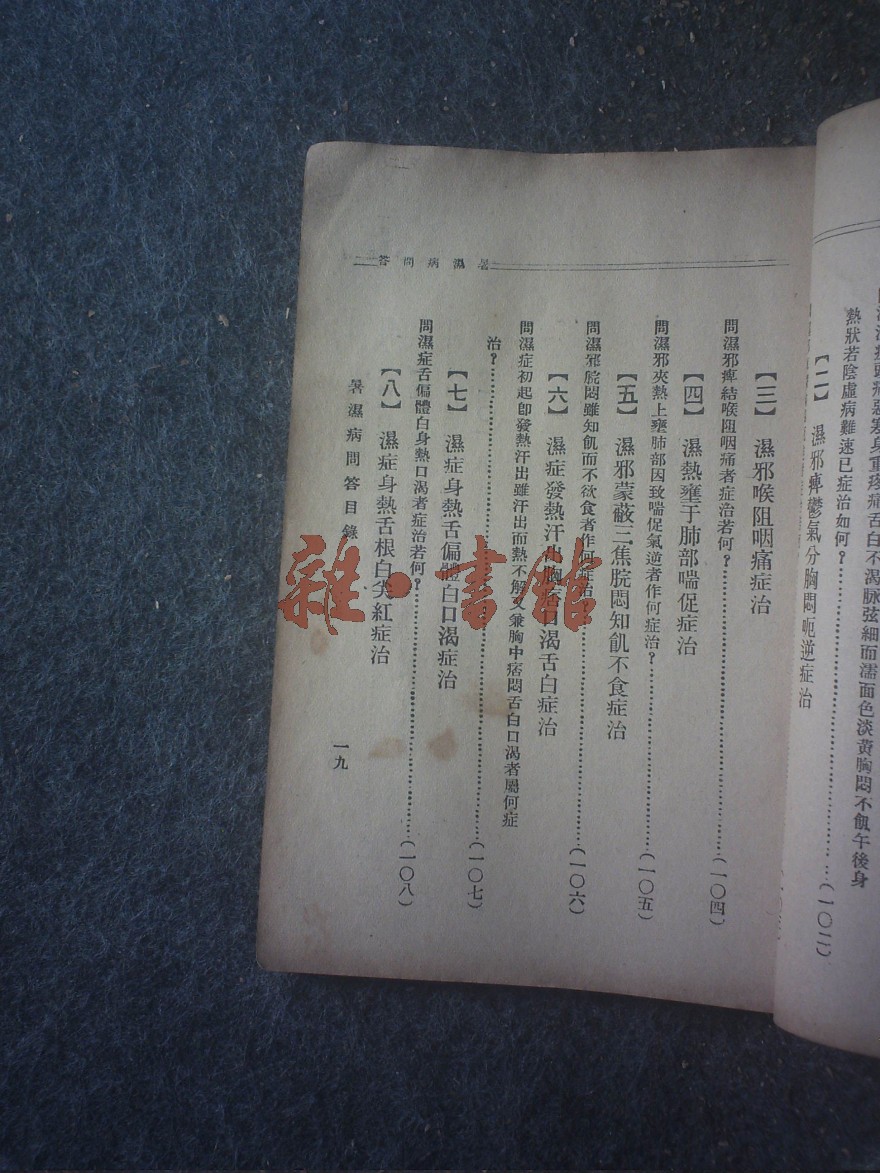 熱狀若陰虛病難速已症治如何？……(一〇二)
【二】　濕邪痺鬱氣分胸悶呃逆症治
暑濕病問答
【三】　濕邪喉阻咽痛症治
問濕邪痺結喉阻咽痛者症治若何？……(一〇四)
【四】　濕熱壅于肺部喘促症治
問濕邪夾熱上壅肺部因致喘促氣逆者作何症治？……(一〇五)
【五】　濕邪蒙蔽三焦脘悶知飢不食症治
問濕邪脘悶雖知飢而不欲食者作何症治……(一〇六)
【六】　濕症發熱汗出胸痞口渴舌白症治
問濕症初起卽發熱汗出雖汗出而熱不解又兼胸中痞悶舌白口渴者屬何症
治？……(一〇七)
【七】　濕症身熱舌偏體白口渴症治
問濕症舌偏體白身熱口渴者症治若何？……(一〇八)
【八】　濕症身熱舌根白尖紅症治
暑濕病問答目錄
一九
雜·書館